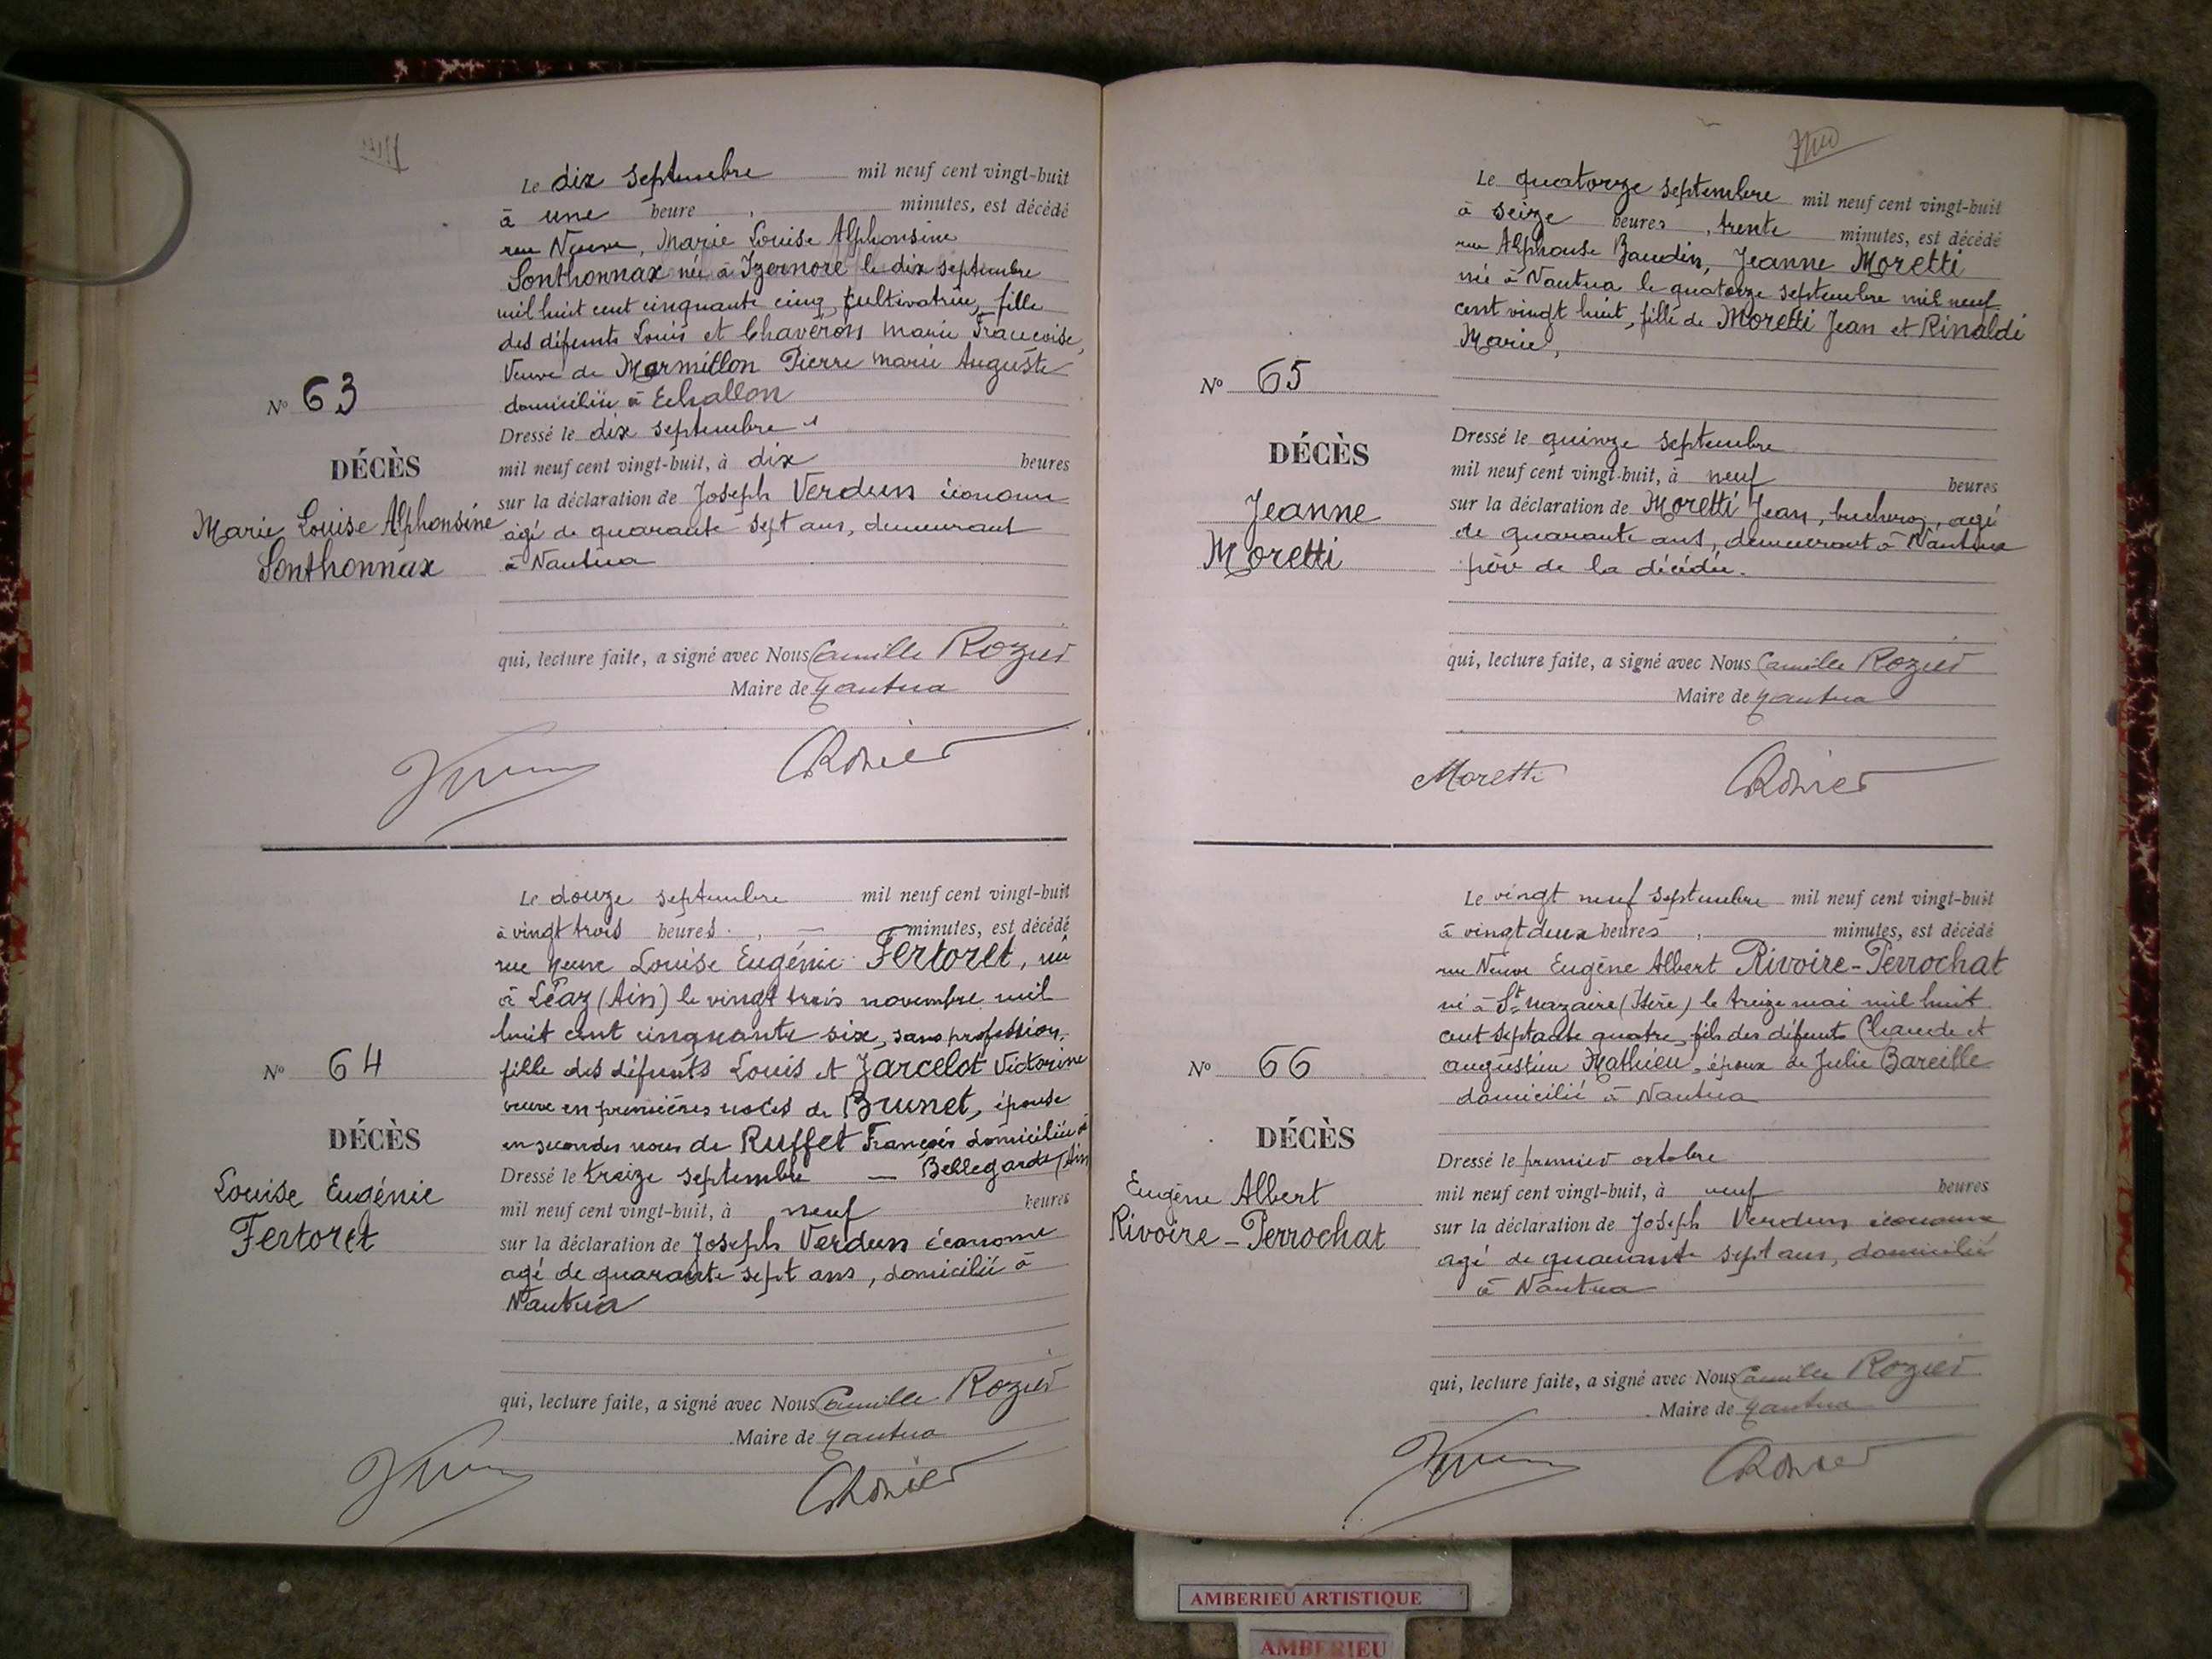 Le dix septembre mil neuf cent vingt-huit
à une heure , minutes, est décédé
rue Neuve, Marie Louise Alphonsine
Sonthonnax née à Izernore le dix septembre
mil huit cent cinquante cinq, cultivatrice, fille
des défunts Louis et Chavéron Marie Françoise,
Veuve de Marmillon Pierre Marie Auguste
domiciliée à Echallon
Nº 63
DÉCÈS
Marie Louise Alphonsine
Sonthonnax
Dressé le dix septembre
mil neuf cent vingt-huit, à dix heures
sur la déclaration de Joseph Verdun économe
agé de quarante sept ans, demeurant
à Nantua
qui, lecture faite, a signé avec Nous Camille Rozier
Maire de Nantua
CRozier
Le douze septembre mil neuf cent vingt-huit
à vingt trois heures , — minutes, est décédé
rue Neuve Louise Eugénie Fertoret, née
à Léaz (Ain) le vingt trois novembre mil
huit cent cinquante six, sans profession,
fille des défunts Louis et Jarcelot Victorine
veuve en premières noces de Brunet, épouse
en secondes noces de Ruffet François domiciliée à
Nº 64
DÉCÈS
Louise Eugénie
Fertoret
Dressé le treize septembre — Bellegarde (Ain
mil neuf cent vingt-huit, à neuf heures
sur la déclaration de Joseph Verdun économe
agé de quarante sept ans, domicilié à
Nantua
qui, lecture faite, a signé avec Nous Camille Rozier
Maire de Nantua
CRozier
Le quatorze septembre mil neuf cent vingt-huit
à seize heures , trente minutes, est décédé
rue Alphonse Baudin, Jeanne Moretti
née à Nantua le quatorze septembre mil neuf
cent vingt huit, fille de Moretti Jean et Rinaldi
Marie,
Nº 65
DÉCÈS
Jeanne
Moretti
Dressé le quinze septembre
mil neuf cent vingt-huit, à neuf heures
sur la déclaration de Moretti Jean, bucheron, agé
de quarante ans, demeurant à Nantua
père de la décédée.
qui, lecture faite, a signé avec Nous Camille Rozier
Maire de Nantua
Moretti CRozier
Le vingt neuf septembre mil neuf cent vingt-huit
à vingt deux heures , minutes, est décédé
rue Neuve Eugène Albert Rivoire-Perrochat
né à St Nazaire (Isère) le treize mai mil huit
cent septante quatre, fils des défunts Claude et
Augustine Mathieu, époux de Julie Bareille
domicilié à Nantua
Nº 66
DÉCÈS
Eugène Albert
Rivoire-Perrochat
Dressé le premier octobre
mil neuf cent vingt-huit, à neuf heures
sur la déclaration de Joseph Verdun économe
agé de quarante sept ans, domicilié
à Nantua
qui, lecture faite, a signé avec Nous Camille Rozier
Maire de Nantua
CRozier
AMBERIEU ARTISTIQUE
AMBERIEU